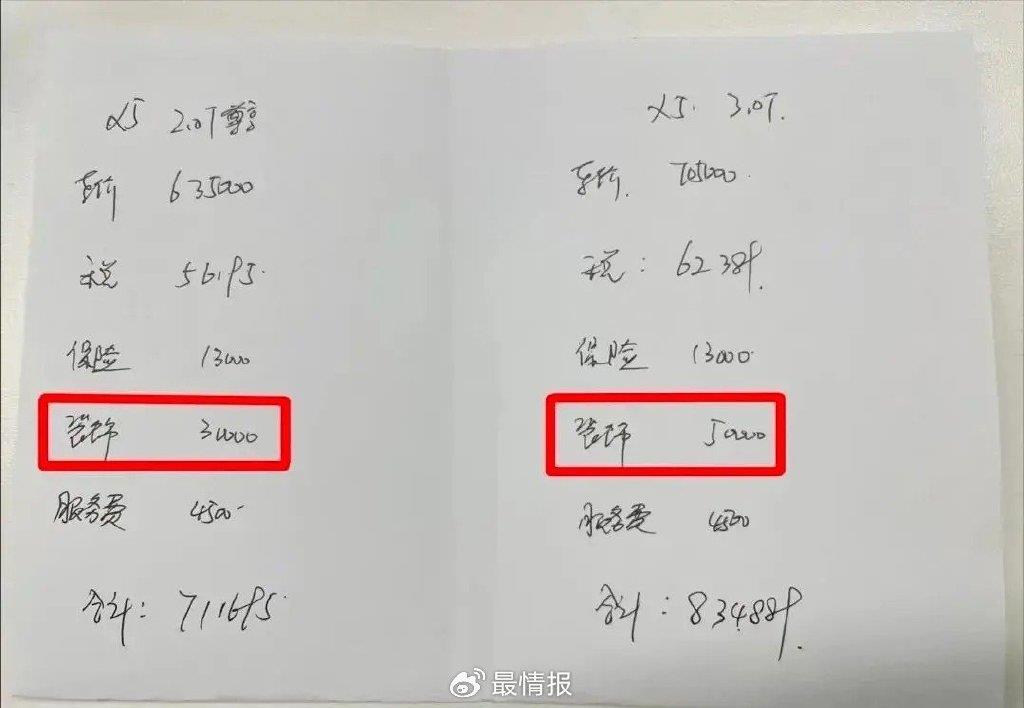 X5 2.0T 尊享
车价 635000
税 56195
保险 13000
装饰 30000
服务费 4500
合计: 711695
X5. 3.0T.
车价. 705000
税: 62389.
保险 13000
装饰 50000
服务费 4500
合计: 834889.
最情报